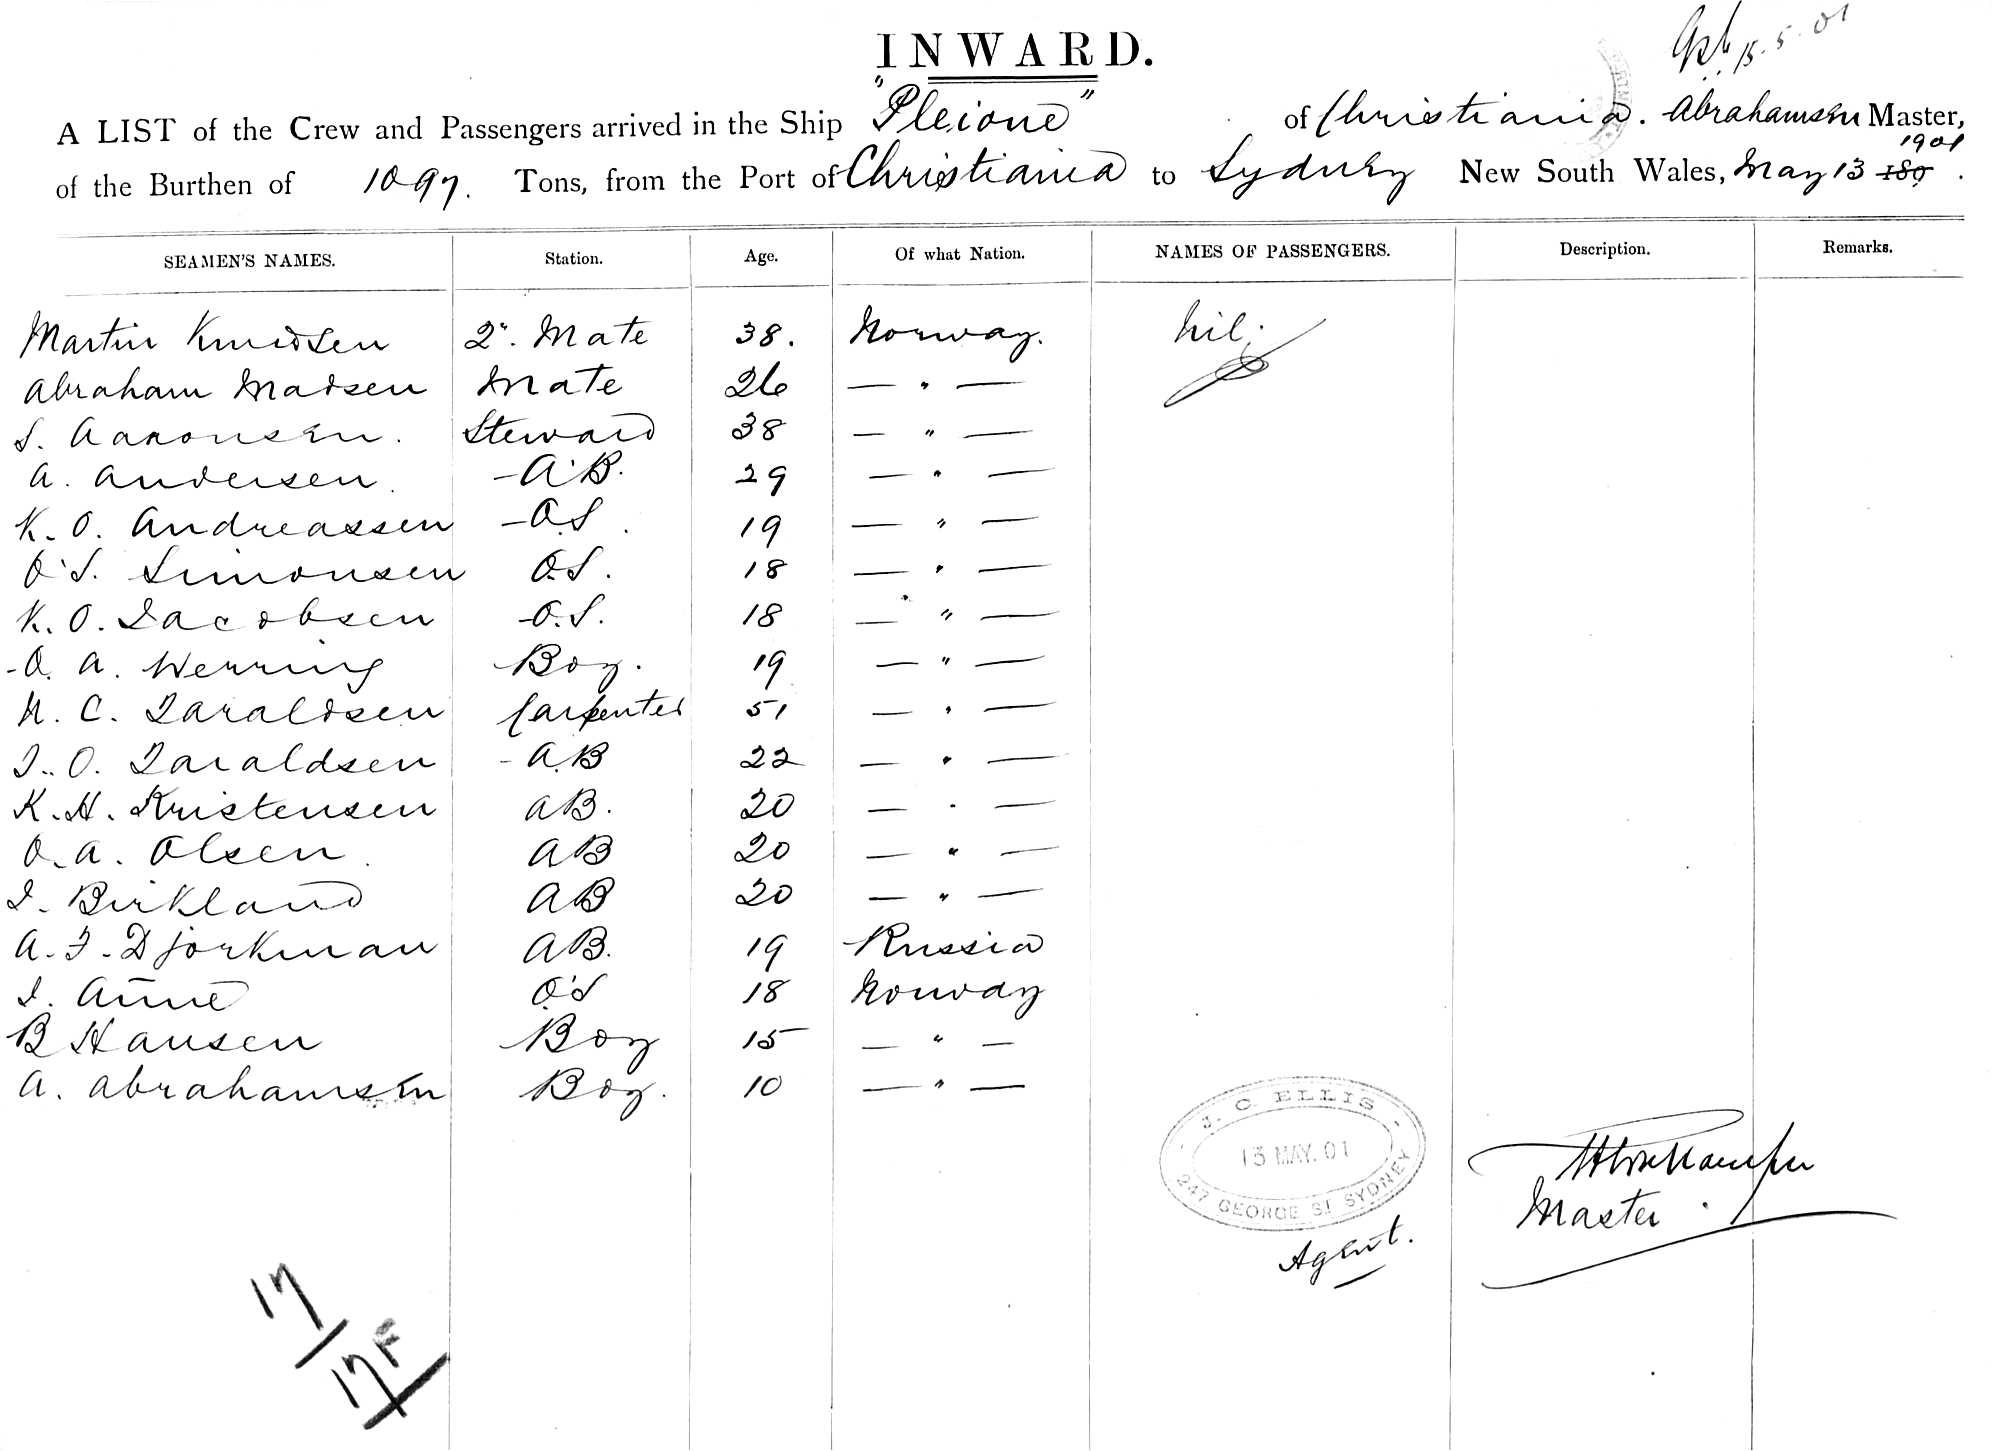 INWARD.
15.5.01
A LIST of the Crew and Passengers arrived in the Ship "Pleione" of Christiania. Abrahamsen Master,
of the Burthen of 1097. Tons, from the Port of Christiania to Sydney New South Wales, May 13 189 1901.
SEAMEN'S NAMES. Station. Age. Of what Nation. NAMES OF PASSENGERS. Description. Remarks.
Martin Knudsen 2" Mate 38. Norway. nil.
Abraham Madsen Mate 26 — " —
S. Aaronsen. Steward 38 — " —
A. Andersen. A.B. 29 — " —
K. O. Andreassen O.S. 19 — " —
O. S. Simonsen O.S. 18 — " —
K. O. Jacobsen O.S. 18 — " —
O. A. Werring Boy. 19 — " —
N. C. Taraldsen Carpenter 51 — " —
T. O. Taraldsen A.B 22 — " —
K. H. Kristensen AB. 20 — " —
O. A. Olsen. AB 20 — " —
I. Birkland AB 20 — " —
A. F. Djorkman AB. 19 Russia
I. Anne O.S 18 Norway
B Hansen Boy 15 — " —
A. Abrahamsen Boy. 10 — " —
J. C. ELLIS
13 MAY. 01
247 GEORGE ST SYDNEY
Agent.
Master
17
17F